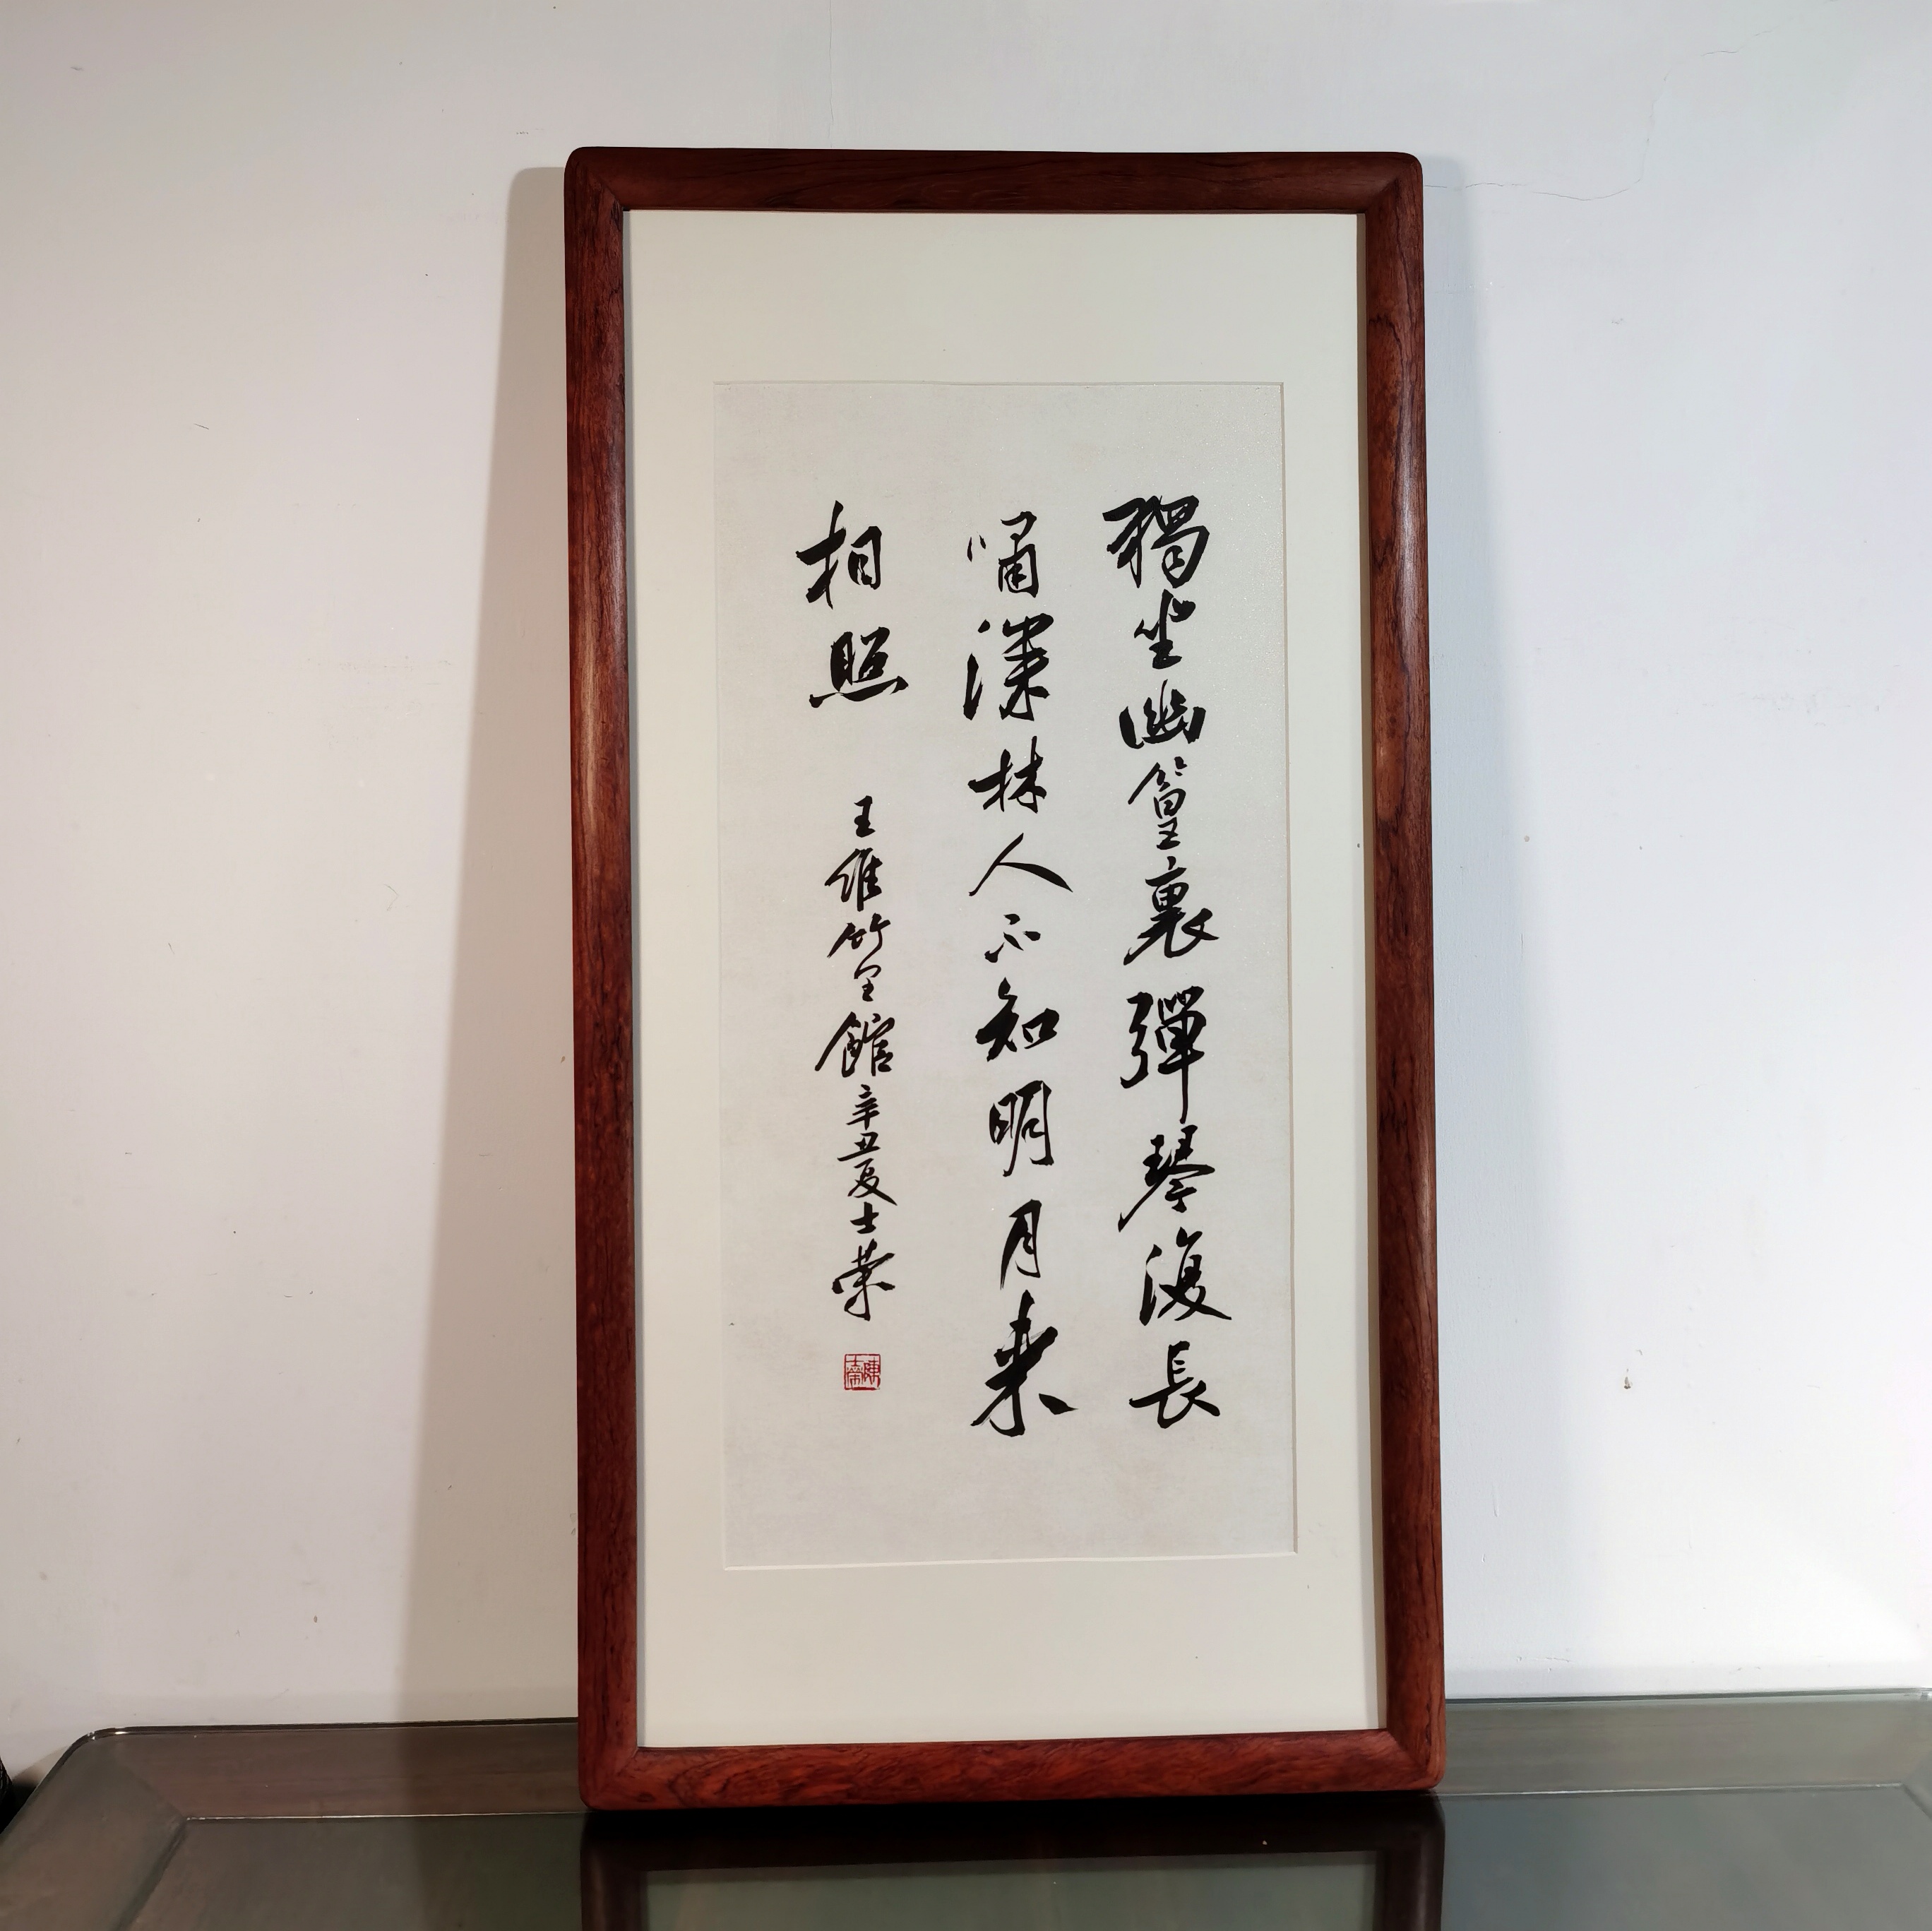 獨坐幽篁裏彈琴復長
嘯深林人不知明月来
相照
王維竹里館辛丑夏士荣
陳士榮